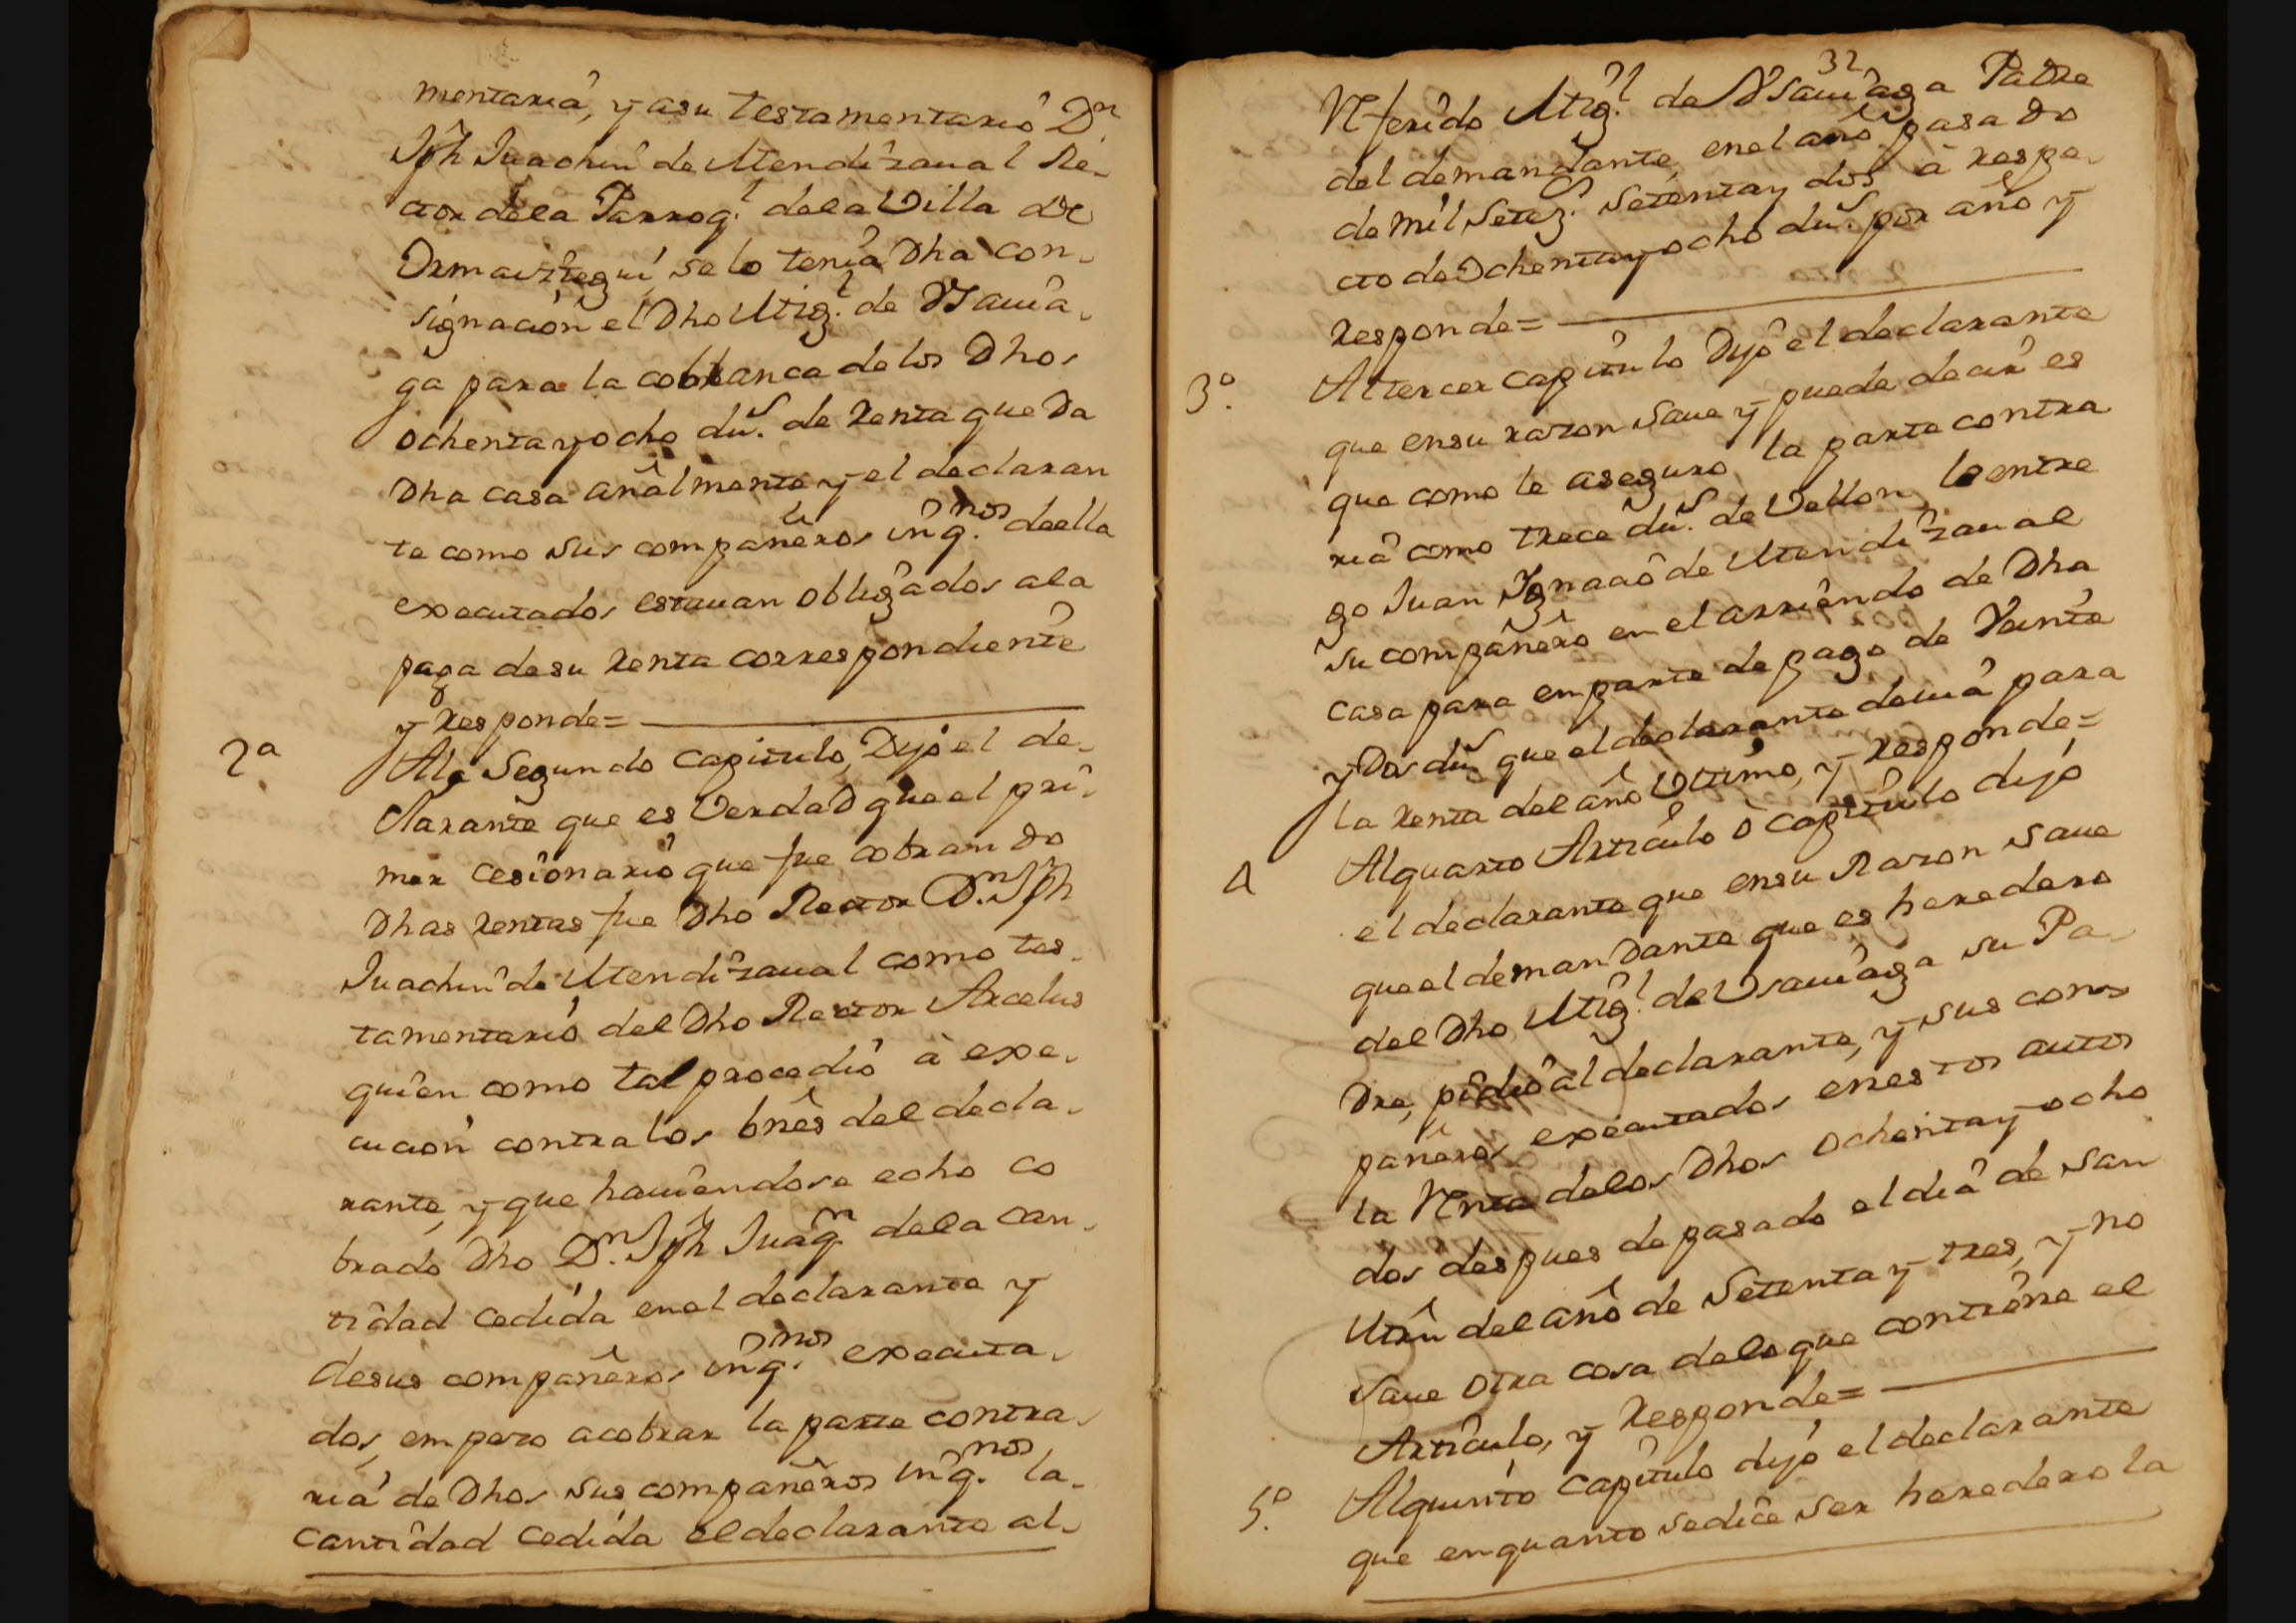 mentaria, y asu testamentario Dn.
Jph Juachin de Mendizaual Re-
ctor dela Parroql. dela Villa de
Ormaiztegui, selo tenia Dha con-
signacion el Dho Migl. de Vsauia-
ga para la cobranca delos Dhos
ochenta y ocho dus. de Renta que Da
Dha casa añalmente y el declaran
te como sus compañeros inqnos. deella
executados estauan obligados ala
paga desu Renta correspondiente
y Responde=
2a Ala Segundo capitulo, Dijo el de-
clarante que es Verdad que el pri-
mer cesionario que fue cobrando
Dhas Rentas fue Dho Rector Dn. Jph
Juachin de Mendizaual como tes-
tamentario del Dho Rector Arcelus
quien como tal procedio à exe-
cucion contra los bnes del decla-
rante, y que hauiendose echo co
brado Dho Dn. Jph Juaqn. dela can-
tidad cedida enel declarante y
desus compañeros inqnos. executa-
dos, empezo acobrar la parte contra-
ria de Dhos sus compañeros inqnos. la-
cantidad cedida el declarante al-
32
Referido Migl. de Vsauiaga Padre
del demandante, enel año pasado
de mil Setezs. Setenta y dos à respe-
cto de Ochenta y ocho dus. por año y
Responde=
3o. Al tercer capitulo Dijo el declarante
que ensu razon saue y puede decir es
que como le aseguro la parte contra
ria como trece dus. de Vellon le entre
go Juan Ignacio de Mendizaual
su compañero en el arriendo de Dha
casa para en parte de pago de Veinte
y Dos dus que el declarante deuia para
la Renta del año Vltimo, y Responde=
4 Alquarto Articulo ò capitulo dijo
el declarante que ensu Razon saue
que el demandante que es heredero
del Dho Migl. de Vsauiaga su Pa-
Dre, pidio al declarante, y sus com-
pañeros executados enestos autos
la Renta delos Dhos ochenta y ocho
dos despues de pasado el dia de San
Mrn del año de Setenta y tres, y no
saue otra cosa delo que contiene el
Articulo, y Responde=
5o. Alquinto capitulo dijo el declarante
que enquanto sedice ser heredero la